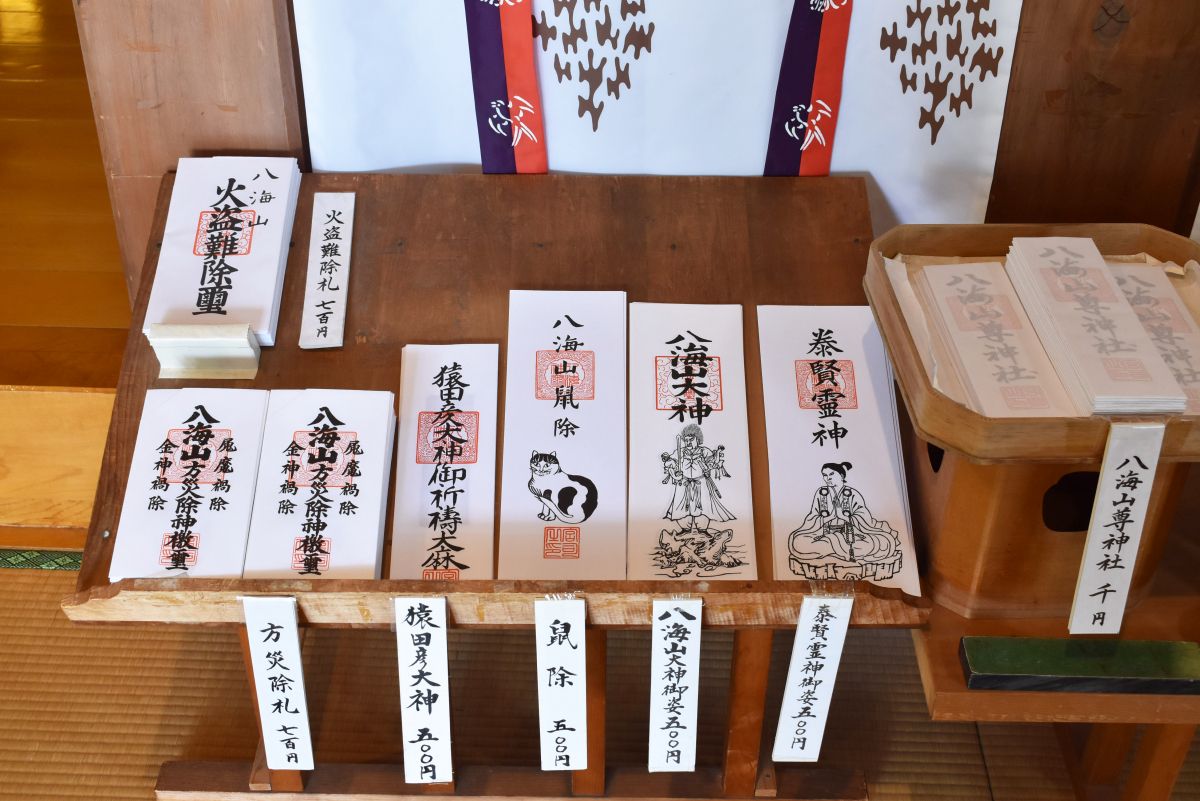 八海山
火盗難除璽
火盗難除札 七百円
八海山方災除神檄璽
金神禍除
八海山方災除神檄璽
金神禍除
猿田彦大神御祈祷大麻
八海山鼠除
八海山大神
泰賢霊神
八海山尊神社
八海山尊神社
方災除札 七百円
猿田彦大神 五〇〇円
鼠除 五〇〇円
八海山大神御姿 五〇〇円
泰賢霊神御姿 五〇〇円
八海山尊神社 千円